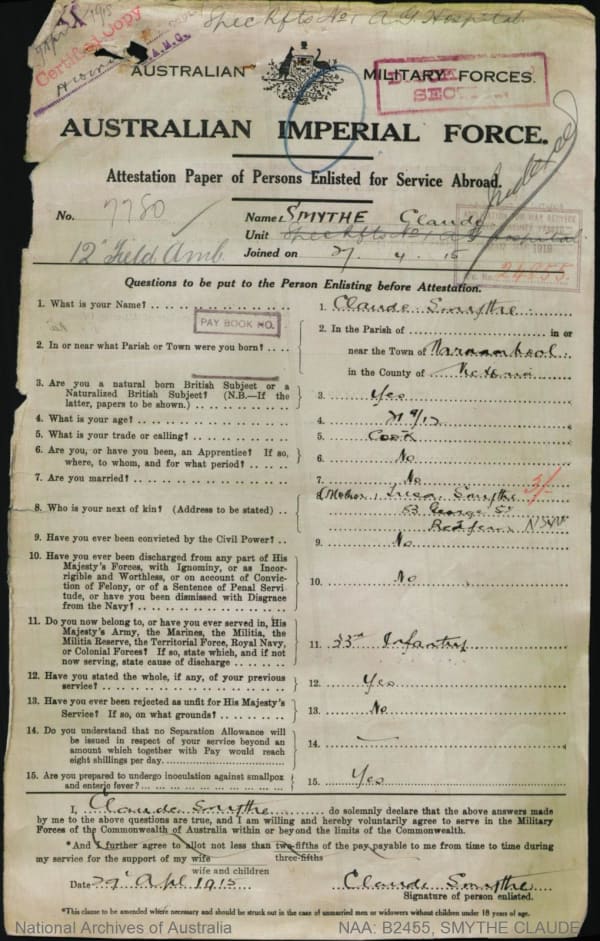 Spec Rfts No 1 A G Hospital
1915
Certified Copy
A.M.C.
AUSTRALIAN MILITARY FORCES.
SECTION
AUSTRALIAN IMPERIAL FORCE.
Attestation Paper of Persons Enlisted for Service Abroad.
No. 7780 Name SMYTHE Claude
Unit Spec Rfts No 1 A G Hospital
12" Field Amb. Joined on 27. 4. 15
24855.
Questions to be put to the Person Enlisting before Attestation.
1. What is your Name? 1. Claude Smythe
PAY BOOK NO.
2. In or near what Parish or Town were you born? 2. In the Parish of in or
near the Town of
in the County of Victoria
3. Are you a natural born British Subject or a
Naturalized British Subject? (N.B.—If the
latter, papers to be shown.) 3. Yes
4. What is your age? 4.
5. What is your trade or calling? 5. Cook
6. Are you, or have you been, an Apprentice? If so,
where, to whom, and for what period? 6. No
7. Are you married? 7. No
3/-
8. Who is your next of kin? (Address to be stated) 8. (Mother) Smythe
53 George St
Redfern NSW
9. Have you ever been convicted by the Civil Power? 9. No
10. Have you ever been discharged from any part of His
Majesty's Forces, with Ignominy, or as Incor-
rigible and Worthless, or on account of Convic-
tion of Felony, or of a Sentence of Penal Servi-
tude, or have you been dismissed with Disgrace
from the Navy? 10. No
11. Do you now belong to, or have you ever served in, His
Majesty's Army, the Marines, the Militia, the
Militia Reserve, the Territorial Force, Royal Navy,
or Colonial Forces? If so, state which, and if not
now serving, state cause of discharge 11. 33rd Infantry
12. Have you stated the whole, if any, of your previous
service? 12. Yes
13. Have you ever been rejected as unfit for His Majesty's
Service? If so, on what grounds? 13. No
14. Do you understand that no Separation Allowance will
be issued in respect of your service beyond an
amount which together with Pay would reach
eight shillings per day 14. —
15. Are you prepared to undergo inoculation against smallpox
and enteric fever? 15. Yes
I, Claude Smythe do solemnly declare that the above answers made
by me to the above questions are true, and I am willing and hereby voluntarily agree to serve in the Military
Forces of the Commonwealth of Australia within or beyond the limits of the Commonwealth.
*And I further agree to allot not less than two-fifths of the pay payable to me from time to time during
three-fifths
my service for the support of my wife
wife and children
Date 27 Apl 1915 Claude Smythe
Signature of person enlisted.
*This clause to be amended where necessary and should be struck out in the case of unmarried men or widowers without children under 18 years of age.
National Archives of Australia NAA: B2455, SMYTHE CLAUDE